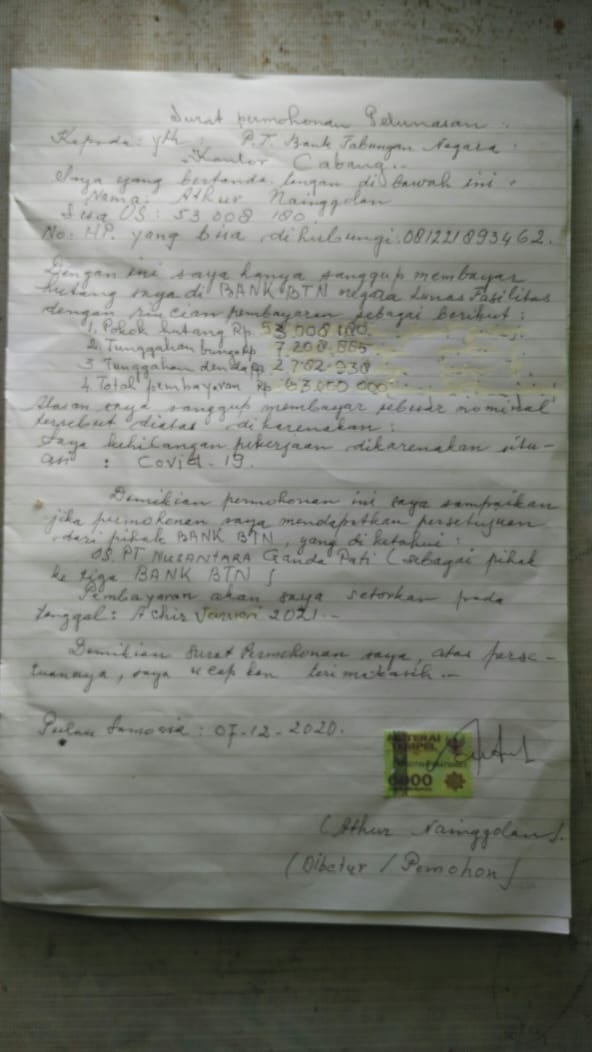 Surat permohonan Pelunasan.
Kepada: yth : P.T. Bank Tabungan Negara:
Kantor Cabang..
Saya yang bertanda tangan di bawah ini:
Nama: Athur Nainggolan
Sisa US: 53 008 180.
No: HP. yang bisa dihubungi: 081221893462.
Dengan ini saya hanya sanggup membayar
hutang saya di BANK BTN negara lunas Fasilitas
dengan rincian pembayaran sebagai berikut:
1. Pokok hutang Rp. 53 008 180.
2. Tunggakan bunga Rp 7 208 885
3 Tunggakan denda Rp 2 782 938
4. Total pembayaran Rp 63 000 000
Alasan saya sanggup membayar sebesar nominal
tersebut diatas dikarenakan:
Saya kehilangan pekerjaan dikarenakan situ-
asi : Covid-19.
Demikian permohonan ini saya sampaikan
jika permohonan saya mendapatkan persetujuan
dari pihak BANK BTN, yang diketahui:
OS. PT NUSANTARA Ganda Pati (sebagai pihak
ke tiga BANK BTN)
Pembayaran akan saya setorkan pada
tanggal: Achir Januari 2021.-
Demikian Surat Permohonan saya, atas perse-
tuannya, saya ucapkan terimakasih.-
Pulau Samosir: 07-12-2020.
METERAI
TEMPEL
6000
(Athur Nainggolan).
(Dibetur / Pemohon)